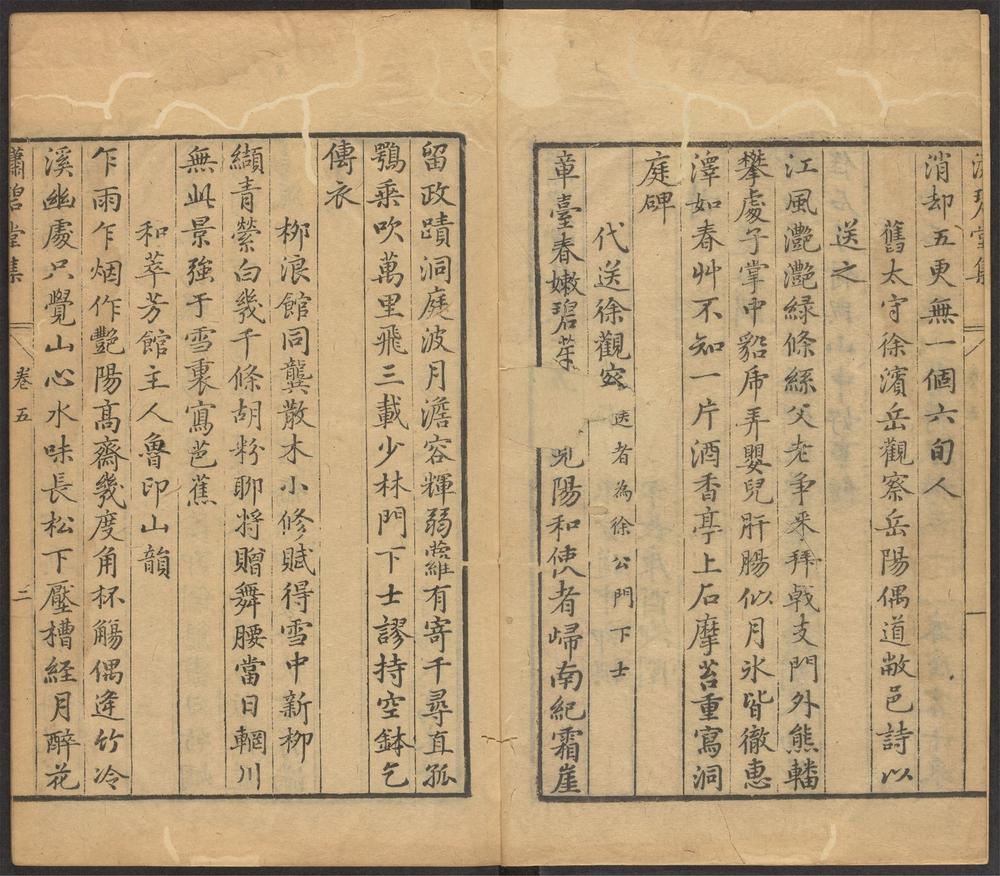 瀟碧堂集 一
消却五更無一個六旬人
舊太守徐濱岳觀察岳陽偶道敝邑詩以
送之
江風灔灔緑條絲父老爭来拜戟支門外熊轓
攀處子掌中貂乕弄嬰兒肝腸似月氷皆徹惠
澤如春艸不知一片酒香亭上石摩苔重寫洞
庭碑
代送徐觀察 送者為徐公門下士
章臺春嫩碧 陽和使者歸南紀霜崖
留政蹟洞庭波月澹容輝弱蘿有寄千尋直孤
鶚乗吹萬里飛三載少林門下士謬持空鉢乞
傳衣
柳浪館同龔散木小修賦得雪中新柳
纈青縈白幾千條胡粉聊将贈舞腰當日輞川
無此景強于雪裏寫芭蕉
和萃芳館主人魯印山韻
乍雨乍烟作艷陽髙齋幾度角杯觴偶逢竹冷
溪幽處只覺山心水味長松下壓槽経月醉花
瀟碧堂集 卷五 二